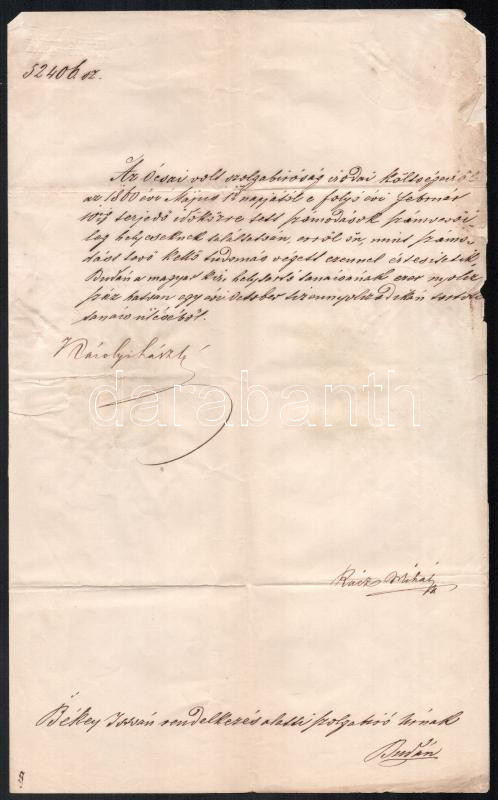 52406. sz.
Az Ócsai volt szolgabiróság irodai költségeiről
az 1860 évi Május 1ső napjától e folyó évi Február
10ig terjedő időközre tett számodások számvevői
leg helyeseknek találtatván, erről ön, mint számo-
dásra kellő tudomás végett ezennel értesittetik.
Budán a magyar kir. helytartó tanácsának ezer nyolcz
száz hatvan egy évi October tizennyolczadikán tartott
tanács üléséből.
Károlyi László
darabanth
Rácz Mihály
Békey István rendelkezés alatti szolgabiró Úrnak
Budán